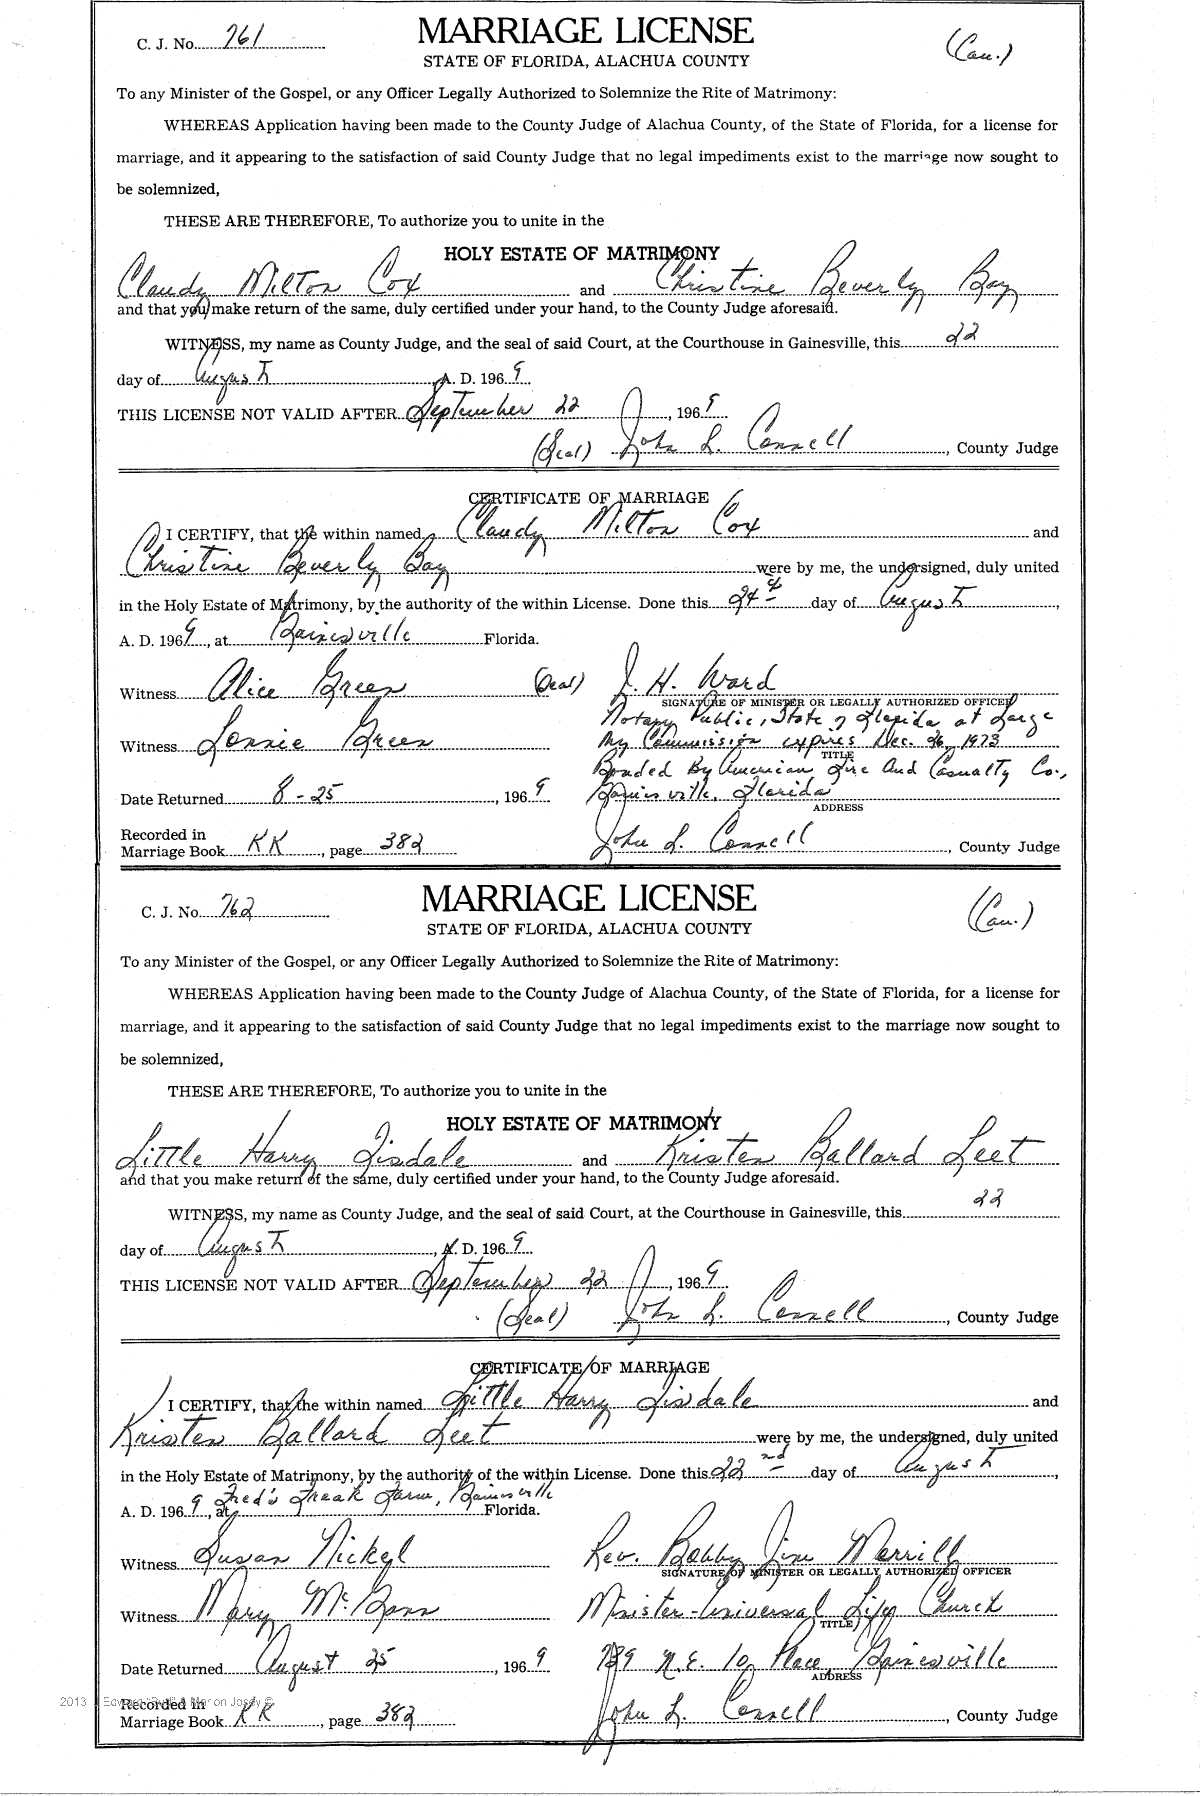 C. J. No. 761
MARRIAGE LICENSE
(Cau.)
STATE OF FLORIDA, ALACHUA COUNTY
To any Minister of the Gospel, or any Officer Legally Authorized to Solemnize the Rite of Matrimony:
WHEREAS Application having been made to the County Judge of Alachua County, of the State of Florida, for a license for
marriage, and it appearing to the satisfaction of said County Judge that no legal impediments exist to the marriage now sought to
be solemnized,
THESE ARE THEREFORE, To authorize you to unite in the
HOLY ESTATE OF MATRIMONY
Claudy Milton Cox and Christine Beverly Bay
and that you make return of the same, duly certified under your hand, to the County Judge aforesaid.
WITNESS, my name as County Judge, and the seal of said Court, at the Courthouse in Gainesville, this 22
day of August, A. D. 1969
THIS LICENSE NOT VALID AFTER September 22, 1969
(Seal) John L. Connell, County Judge
CERTIFICATE OF MARRIAGE
I CERTIFY, that the within named Claudy Milton Cox and
Christine Beverly Bay were by me, the undersigned, duly united
in the Holy Estate of Matrimony, by the authority of the within License. Done this 24th day of August,
A. D. 1969, at Gainesville Florida.
Witness Alice Green (Seal) J. H. Ward
SIGNATURE OF MINISTER OR LEGALLY AUTHORIZED OFFICER
Notary Public, State of Florida at Large
Witness Lonnie Green My Commission expires Dec. 26, 1973
TITLE
Bonded By American Fire And Casualty Co.,
Date Returned 8-25, 1969 Gainesville, Florida
ADDRESS
Recorded in
Marriage Book KK, page 382 John L. Connell, County Judge
C. J. No. 762
MARRIAGE LICENSE
(Cau.)
STATE OF FLORIDA, ALACHUA COUNTY
To any Minister of the Gospel, or any Officer Legally Authorized to Solemnize the Rite of Matrimony:
WHEREAS Application having been made to the County Judge of Alachua County, of the State of Florida, for a license for
marriage, and it appearing to the satisfaction of said County Judge that no legal impediments exist to the marriage now sought to
be solemnized,
THESE ARE THEREFORE, To authorize you to unite in the
HOLY ESTATE OF MATRIMONY
Little Harry Tisdale and Kristen Ballard Leet
and that you make return of the same, duly certified under your hand, to the County Judge aforesaid.
WITNESS, my name as County Judge, and the seal of said Court, at the Courthouse in Gainesville, this 22
day of August, A. D. 1969
THIS LICENSE NOT VALID AFTER September 22, 1969
(Seal) John L. Connell, County Judge
CERTIFICATE OF MARRIAGE
I CERTIFY, that the within named Little Harry Tisdale and
Kristen Ballard Leet were by me, the undersigned, duly united
in the Holy Estate of Matrimony, by the authority of the within License. Done this 22nd day of August,
A. D. 1969, at Fred's Freak Farm, Gainesville Florida.
Witness Susan Nickel Rev. Bobby Jim Merrill
SIGNATURE OF MINISTER OR LEGALLY AUTHORIZED OFFICER
Witness Mary McGann Minister-Universal Life Church
TITLE
Date Returned August 25, 1969 739 N.E. 10 Place, Gainesville
ADDRESS
Recorded in
Marriage Book KK, page 382 John L. Connell, County Judge